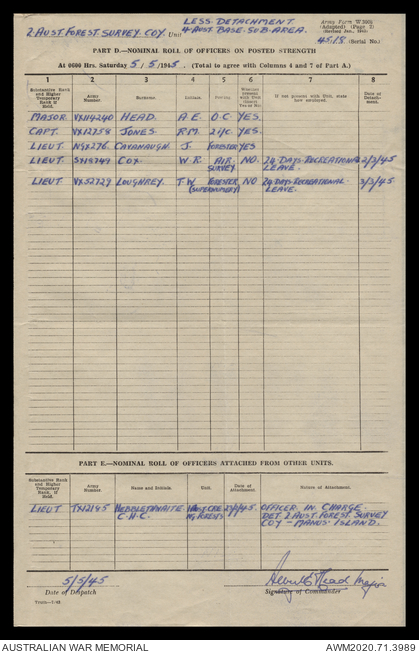 2 AUST. FOREST. SURVEY. COY. Unit LESS. DETACHMENT
4 AUST. BASE. SUB-AREA.
Army Form W 3008
(Adapted) (Page 2)
(Revised Jan., 1945)
45/8 (Serial No.)
PART D.—NOMINAL ROLL OF OFFICERS ON POSTED STRENGTH
At 0600 Hrs. Saturday 5/5/1945. (Total to agree with Columns 4 and 7 of Part A.)
1 2 3 4 5 6 7 8
Substantive Rank and Higher Temporary Rank if Held. Army Number. Surname. Initials. Posting. Whether present with Unit (Insert Yes or No) If not present with Unit, state how employed. Date of Detachment.
MAJOR VX114240 HEAD. A E. O.C. YES.
CAPT. VX12758 JONES. R M. 2 i/c. YES.
LIEUT NGX276. CAVANAUGH J. FORESTER YES
LIEUT SX19249 COX. W R. AIR SURVEY NO. 24 DAYS RECREATIONAL LEAVE. 2/3/45
LIEUT VX52729 LOUGHREY. T W. (SUPERNUMERY) FORESTER NO 24 DAYS RECREATIONAL LEAVE. 3/3/45
PART E.—NOMINAL ROLL OF OFFICERS ATTACHED FROM OTHER UNITS.
Substantive Rank and Higher Temporary Rank, if Held. Army Number. Name and Initials. Unit. Date of Attachment. Nature of Attachment.
LIEUT TX12185 HEBBLETHWAITE C.H.C. NG FORESTS OFFICER IN CHARGE.
DET 2 AUST. FOREST. SURVEY
COY — MANUS ISLAND.
5/5/45
Date of Despatch
Albert E Head Major
Signature of Commander
AUSTRALIAN WAR MEMORIAL
AWM2020.71.3989